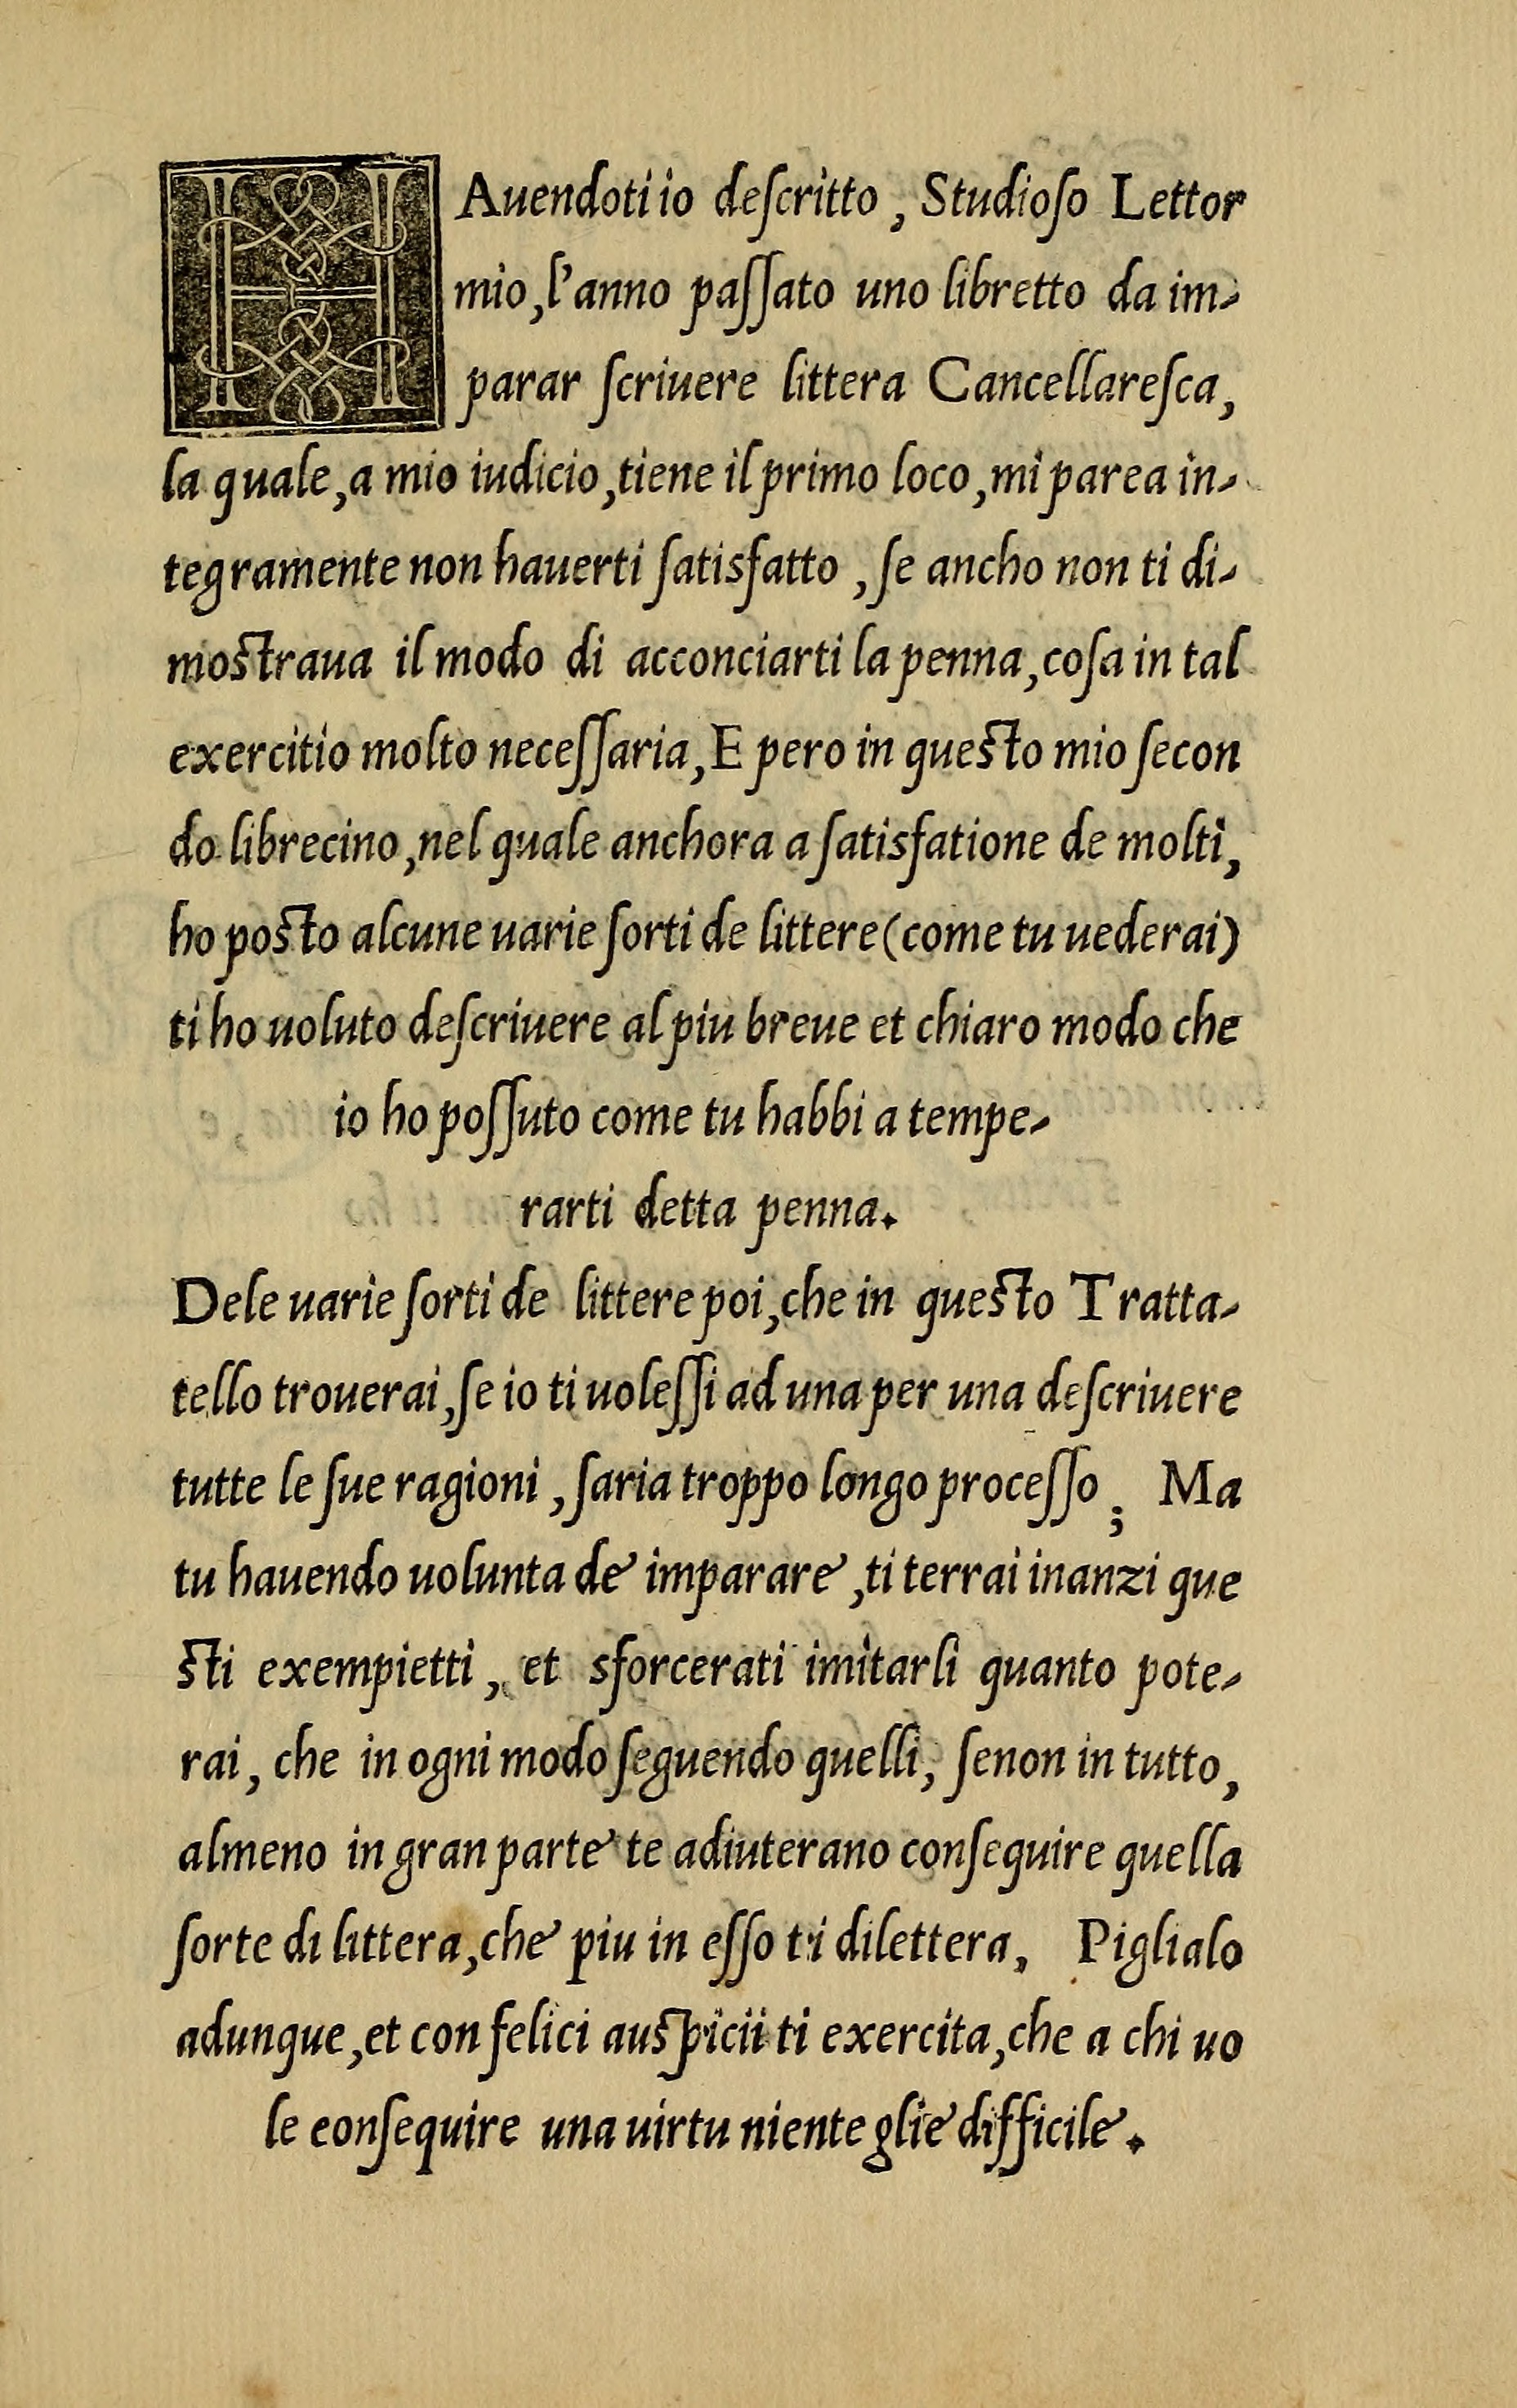 HAuendoti io deſcritto, Studioſo Lettor
mio, l'anno paſſato uno libretto da im-
parar ſcriuere littera Cancellareſca,
la quale, a mio iudicio, tiene il primo loco, mi parea in-
tegramente non hauerti ſatisfatto, ſe ancho non ti di-
moſtraua il modo di acconciarti la penna, coſa in tal
exercitio molto neceſſaria, E pero in queſto mio ſecon
do librecino, nel quale anchora a ſatisfatione de molti,
ho poſto alcune uarie ſorti de littere (come tu uederai)
ti ho uoluto deſcriuere al piu breue et chiaro modo che
io ho poſſuto come tu habbi a tempe-
rarti detta penna.
Dele uarie ſorti de littere poi, che in queſto Tratta-
tello trouerai, ſe io ti uoleſſi ad una per una deſcriuere
tutte le ſue ragioni, ſaria troppo longo proceſſo; Ma
tu hauendo uolunta de imparare, ti terrai inanzi que
ſti exempietti, et sforcerati imitarli quanto pote-
rai, che in ogni modo ſeguendo quelli, ſenon in tutto,
almeno in gran parte te adiuterano conſequire quella
ſorte di littera, che piu in eſſo ti dilettera. Piglialo
adunque, et con felici auſpicii ti exercita, che a chi uo
le conſequire una uirtu niente glie difficile.